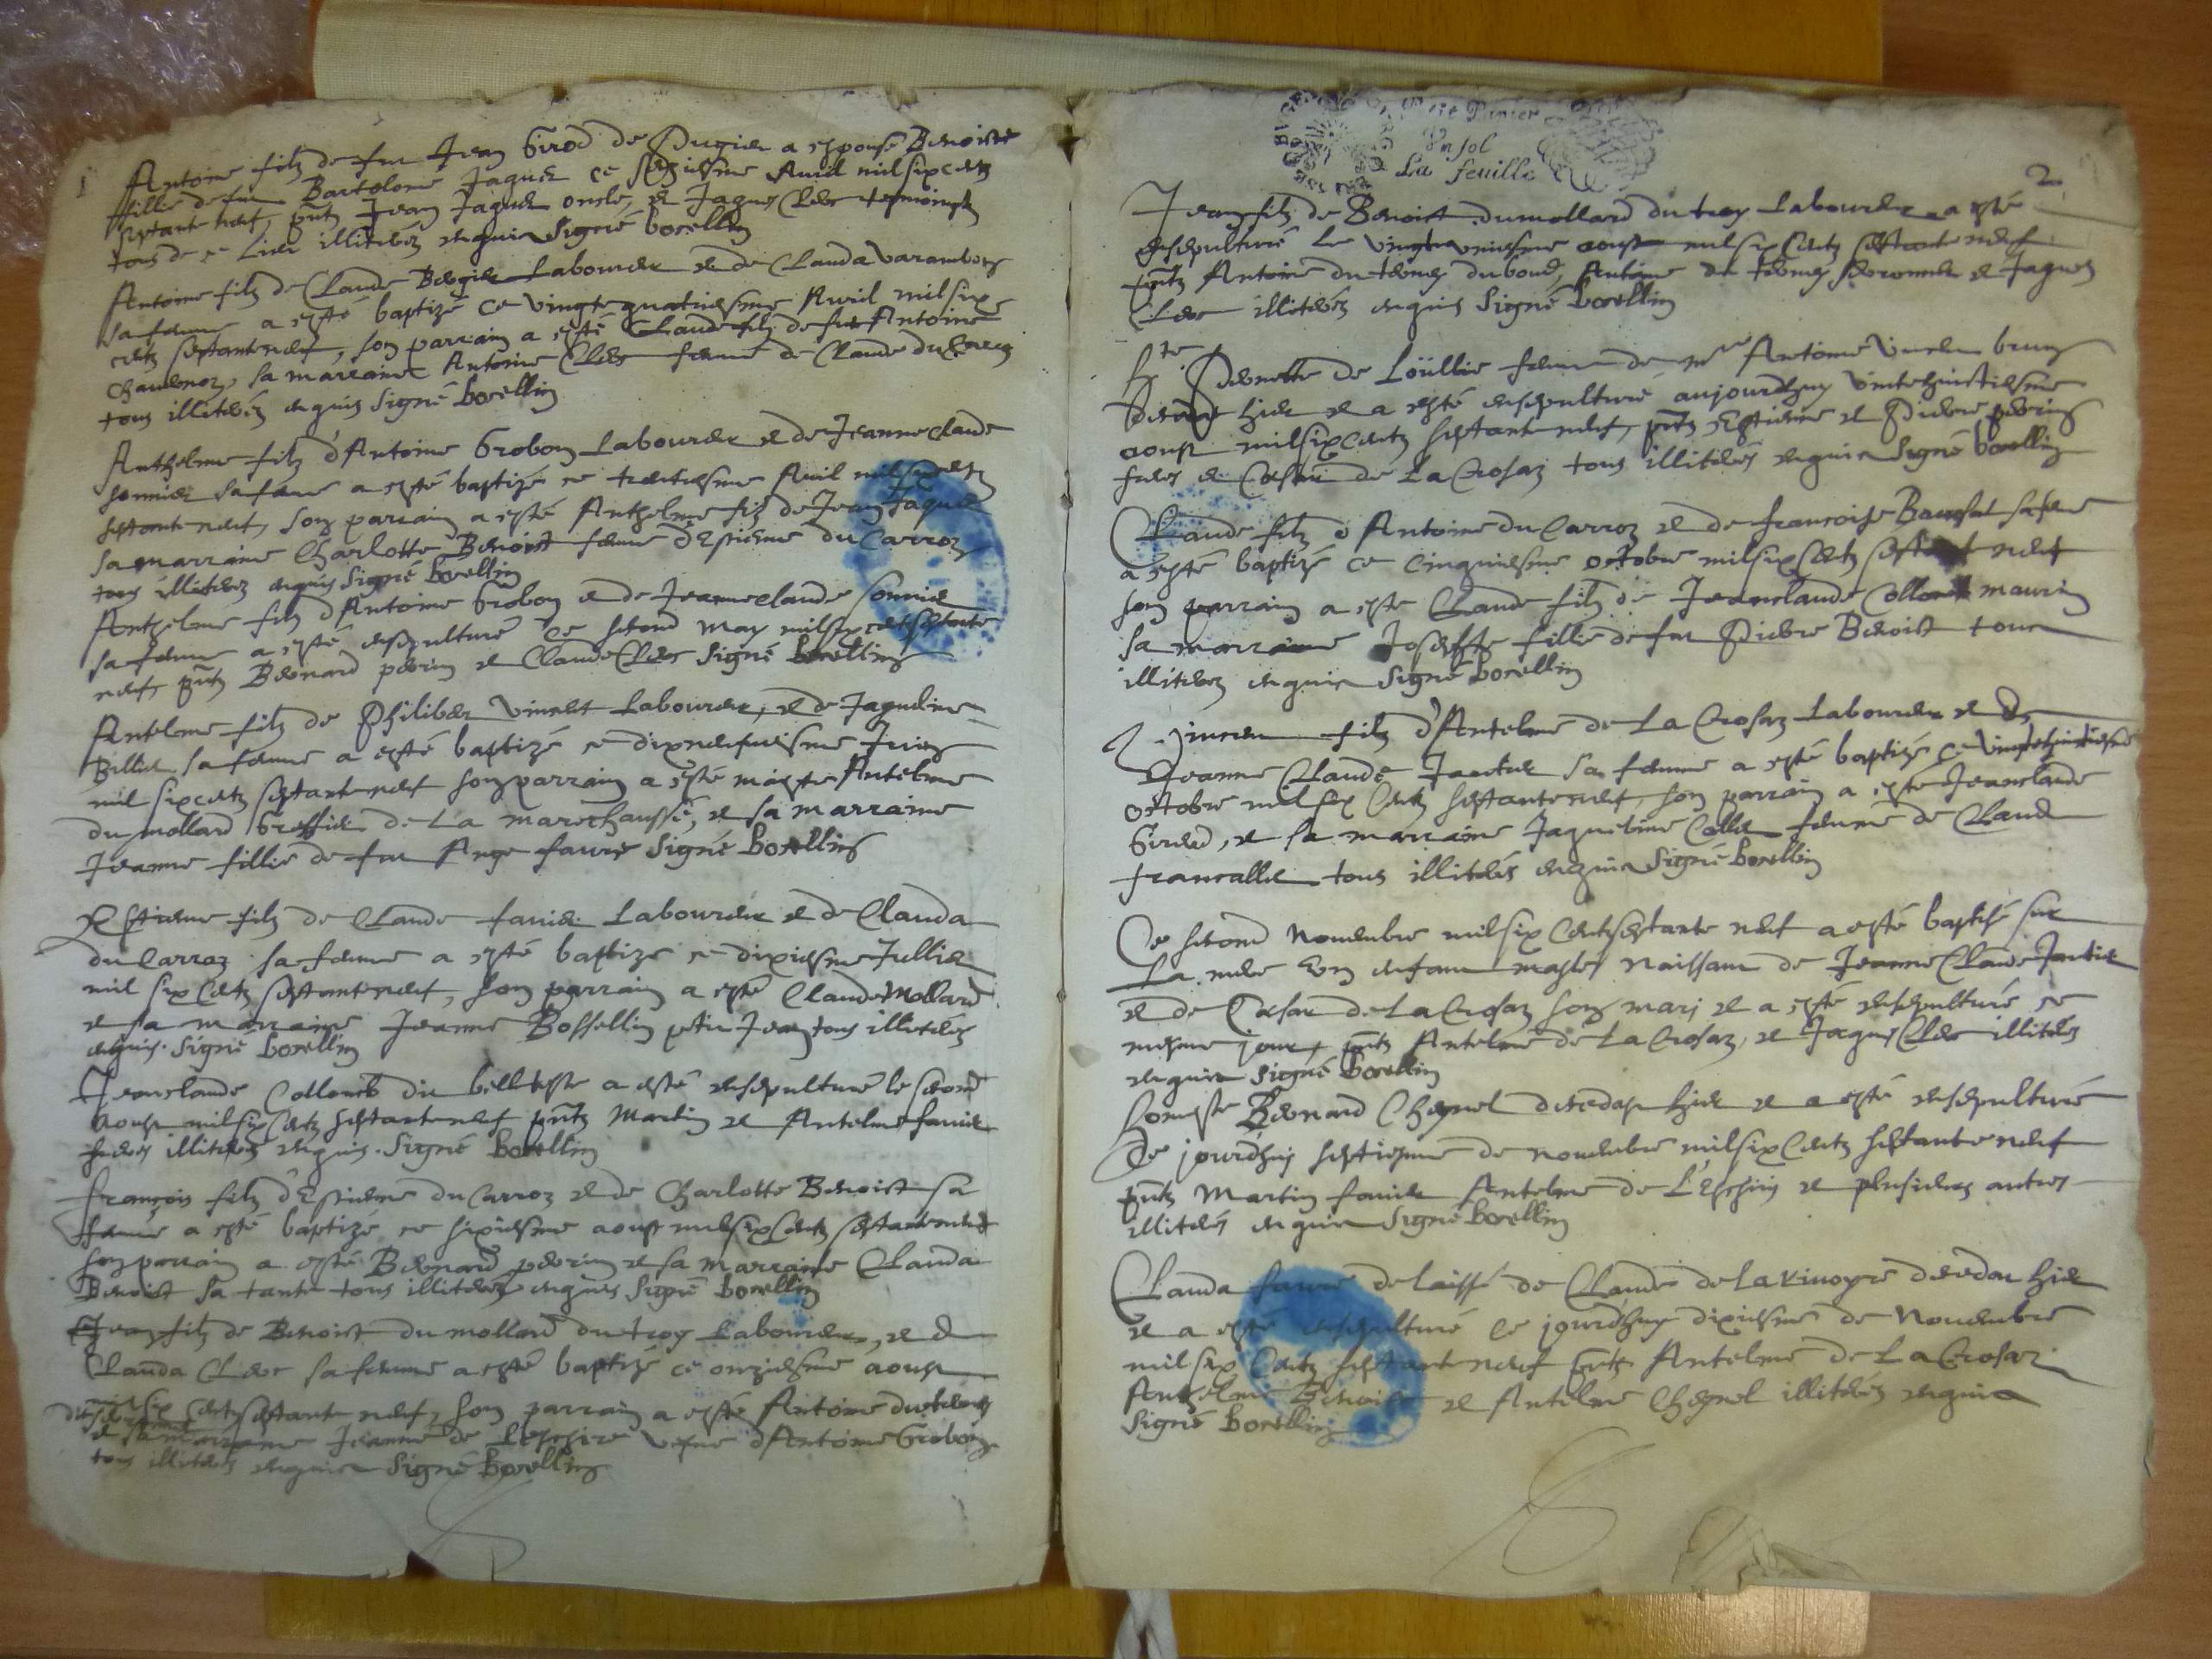 1
Antoine filz de feu Jean Girod de Pugieu a espousé Benoiste
fillie de feu Bartolome Jaquet ce seziesme Avril mil six centz
septante neuf, pntz Jean Jaquet oncle, et Jaques Clerc tesmoingtz
tous de ce lieu illiterez enquis Signé borellin
Antoine filz de Claude Bergier Laboureur et de Clauda Varambon
sa femme a esté baptizé ce vingtequatriesme Avril mil six
centz septante neuf, son parrain a esté Claude filz de feu Antoine
sa marraine Antoine Clerc femme de Claude du Carroz
tous illiterez enquis Signé borellin
Anthelme filz d'Antoine Grobon Laboureur et de Jeanneclaude
sonnier sa femme a esté baptizé ce trentiesme Avril mil six centz
septante neuf, son parrain a esté Anthelme filz de Jean Jaquet
sa marraine Charlotte Benoist femme d'Estienne du Carroz
tous illiterez enquis Signé borellin
Anthelme filz d'Antoine Grobon et de Jeanneclaude sonnier
sa femme a esté ensepulturé ce second May mil six centz septante
neuf, pntz Bernard perrin et Claude Clerc Signé borellin
Antelme filz de Philiber Vincent Laboureur, et de Jaqueline
Billiet sa femme a esté baptizé ce dixneufviesme Juin
mil six centz septante neuf son parrain a esté maistre Antelme
du mollard Greffier de La mareschaussé, et sa marraine
Jeanne fillie de feu Ange faure Signé borellin
Estienne filz de Claude favier Laboureur et de Clauda
du Carroz sa femme a esté baptizé ce dixiesme Jullier
mil six Centz septante neuf, son parrain a esté Claude Mollard
et sa marraine Jeanne Bossellin petit Jean tous illiterez
enquis. Signé borellin
Jeanclaude Collomb du belleteste a esté ensepulturé le second
Aoust mil six Centz septante neuf pntz Martin et Antelme favier
freres illiterez enquis. Signé borellin
François filz d'Estienne du Carroz et de Charlotte Benoist sa
femme a esté baptizé ce sixiesme aoust mil six Centz septante neuf
son parrain a esté Bernard perrin et sa marraine Clauda
Benoist sa tante tous illiterez enquis Signé borellin
Jean filz de Benoist du mollard du troy Laboureur, et de
Clauda Clerc sa femme a esté baptizé ce onziesme aoust
mil six Centz septante neuf, son parrain a esté Antoine
et sa marraine Jeanne de Leschere vefve d'Antoine Grobon
tous illiterez enquis Signé borellin
Petit Papier
Un sol
La feuille
2
Jean filz de Benoist du mollard du troy Laboureur a esté
ensepulturé Le vingtuniesme aoust mil six Centz septante neuf
pntz Antoine et Jaques
Clerc illiterez enquis Signé borellin
Pernette de Loüllie femme de mre Antoine Vincent
hier et a esté ensepulturé aujourdhuy vintehuictiesme
aoust mil six Centz septante neuf, pntz Estienne et Pierre perrin
freres et Cesar de La Crosaz tous illiterez enquis Signé borellin
Claude filz d'Antoine du Carroz et de francoise sa femme
a esté baptizé ce cinquiesme octobre mil six Centz septante neuf
son parrain a esté Claude filz de Jeanclaude Collomb maurin
sa marraine Joseffte fillie de feu Pierre Benoist tous
illiterez enquis Signé borellin
Vincent filz d'Antelme de La Crosaz Laboureur et de
Jeanne Claude sa femme a esté baptizé ce vingtehuictiesme
octobre mil six Centz septante neuf, son parrain a esté Jeanclaude
Girerd, et sa marraine Jaqueline Collet femme de Claude
francallet tous illiterez enquis Signé borellin
Ce second Novembre mil six Centz septante neuf a esté baptisé sur
La mere un enfant masle naissant de Jeanne Claude
et de Cesar de La Crosaz son mari et a esté ensepulturé ce
mesme jour, pntz Antelme de La Crosaz, et Jaques Clerc illiterez
enquis Signé borellin
honeste Bernard Chapel decedast hier et a esté ensepulturé
Ce jourdhuy septiesme de novembre mil six Centz septante neuf
pntz Martin favier Antelme de L'Eschin et plusieurs autres
illiterez enquis Signé borellin
Clauda faure delaissé de Claude de la vinoyre decedat hier
et a esté ensepulturé ce jourdhuy dixiesme de Novembre
mil six Centz septante neuf pntz Antelme de La Crosaz
Anthelme Benoist et Antelme Chapel illiterez enquis
Signé borellin